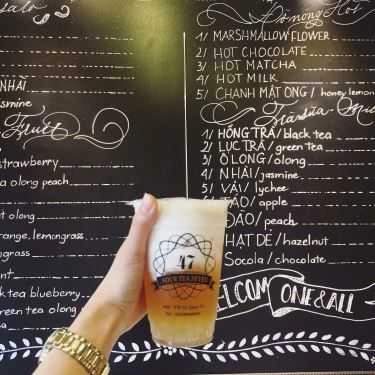 Đồ nóng Hot
1/ MARSHMALLOW FLOWER
2/ HOT CHOCOLATE
3/ HOT MATCHA
4/ HOT MILK
5/ CHANH MẬT ONG / honey lemon
Trà sữa - Milk
1/ HỒNG TRÀ / black tea
2/ LỤC TRÀ / green tea
3/ Ô LONG / olong
4/ NHÀI / jasmine
5/ VẢI / lychee
TÁO / apple
ĐÀO / peach
HẠT DẺ / hazelnut
Socola / chocolate
WELCOM ONE & ALL
NHÀI
jasmine
Fruit
strawberry
olong peach
olong
orange, lemongrass
emongrass
tea blueberry
Green tea olong
olong
47
FOUR TEA SEVEN